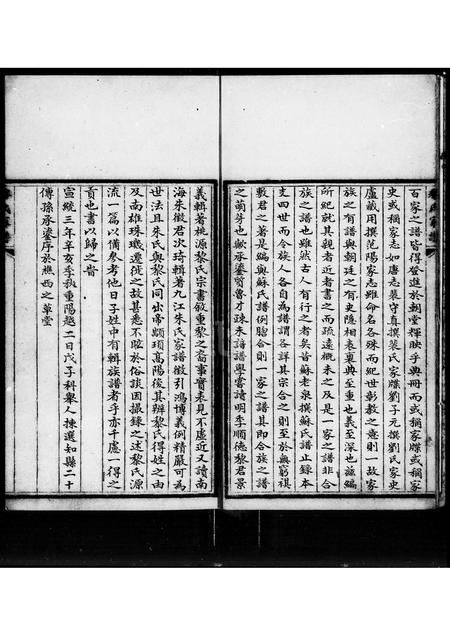 百家之譜皆得登進於朝堂輝映乎典冊而或稱家牒或稱家
史或稱家志如唐志裴守真撰裴氏家牒劉子元撰劉氏家史
盧藏用撰范陽家志雖命名各殊而紀世彰教之意則一故家
族之有譜與朝廷之有史隱相表裏典至重也義至深也茲編
所紀就其親者近者書之而疏遠概未之及是一家之譜非合
族之譜也雖然古人有行之者矣昔蘇老泉撰蘇氏譜止錄本
支四世而令族人各自為譜謂各詳其宗合之則至於無窮祺
數君之著是編與蘇氏譜例脗合則一家之譜其即合族之譜
之萌芽也歟承鎏質魯才疎未諳譜學嘗讀明李順德黎君景
義輯著桃源黎氏宗書敘重黎之裔事實表見不虛近又讀南
海朱徵君次琦輯著九江朱氏家譜徵引鴻博義例精嚴可為
世法且朱氏與黎氏同出帝顓頊高陽後其辨黎氏得姓之由
及南雄珠璣遷徙之故甚悉不眩於俗談因撮錄之述黎氏源
流一篇以備參考他日子姓中有輯族譜者乎亦千慮一得之
貢也書以歸之旹
宣統三年辛亥季秋重陽越二日戊子科舉人揀選知縣二十
傳孫承鎏序於樵西之草堂